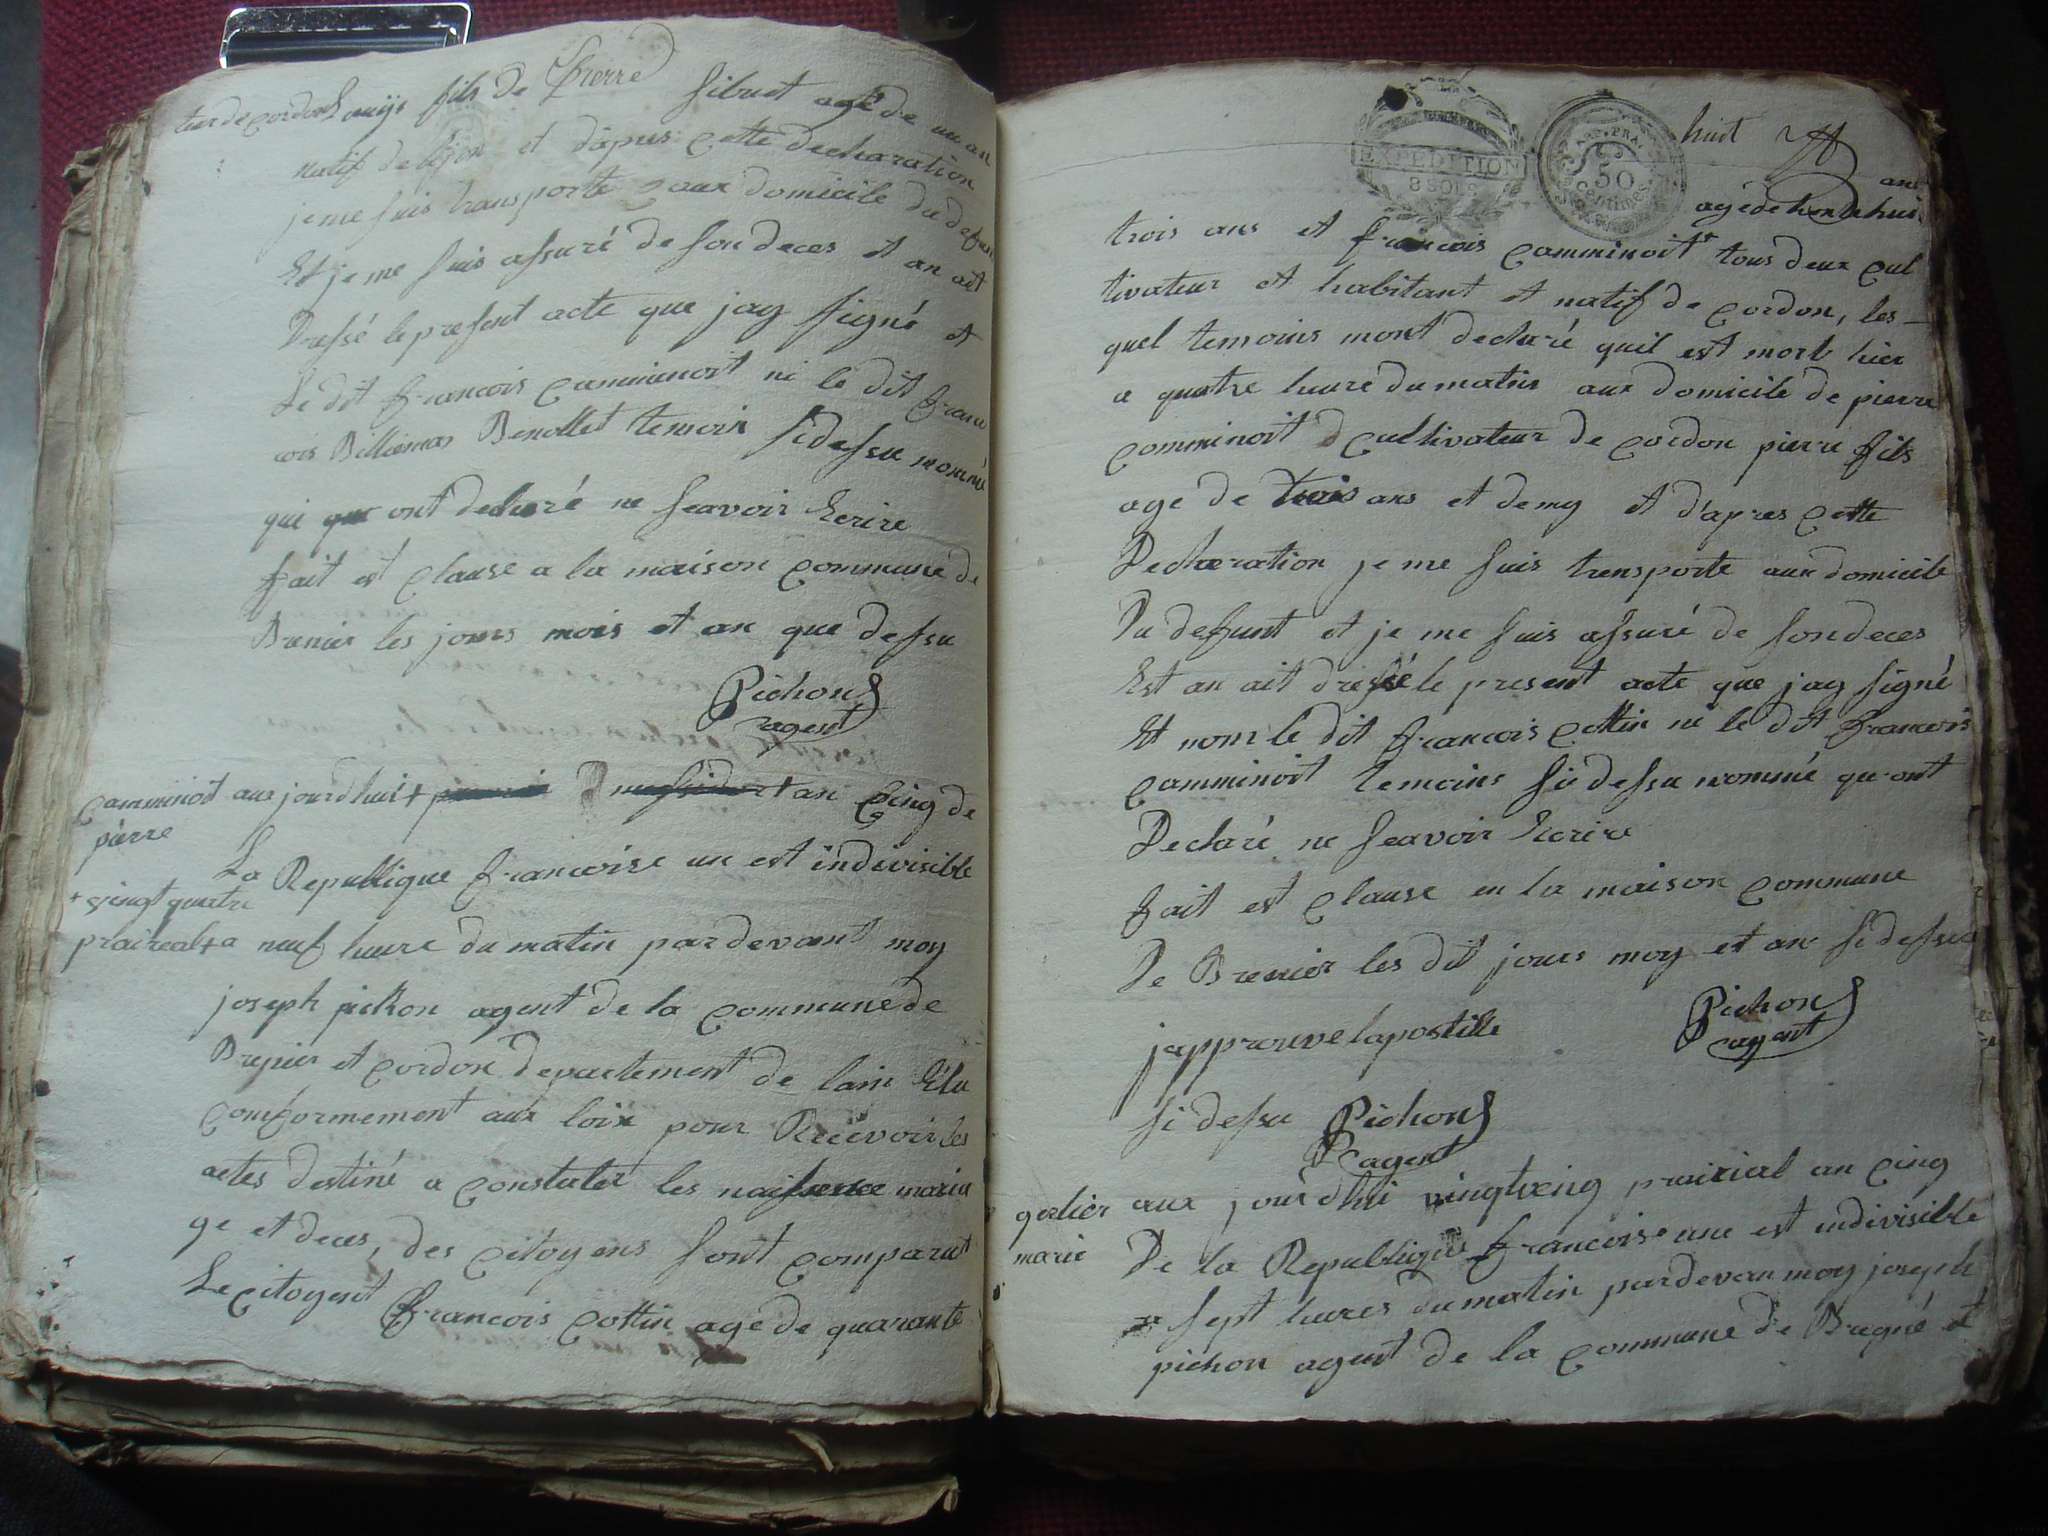 teur de cordon Louije fils de Pierre Sibuet agé de un an
natif de lejon et dapres cette declaration
je me suis transporte aux domicile du defunt
Et je me suis assuré de son deces et an ait
Dressé le present acte que jay signé et
Le dit francois camminoit ni le dit franc
cois Billiemas Benollet temoin sidessu nommé
qui ont declaré ne scavoir Ecrire
fait est clause a la maison commune de
Brenier les jours mois et an que dessu
Pichon
agent
camminoit aux jourdhuit + messidor + an cinq de
pierre
La Republique francoise une est indivisible
+ vingt quatre
prairial + a neuf heure du matin pardevant moy
joseph pichon agent de la commune de
Bregnier et cordon departement de lain Elu
conformement aux loix pour Recevoir les
actes destiné a constater les naissence maria
ge et deces, des citoyens sont comparut
Le citoyent francois cottin age de quarante
EXPEDITION
8 SOLS
50
Centimes
huit
ans
agé de trente huit
trois ans et francois camminoit + tous deux cul
tivateur et habitant et natif de cordon, les
quel temoins mont declaré quil est mort hier
a quatre heure du matin aux domicile de pierre
comminoit cultivateur de cordon pierre fils
age de trois ans et demy et d'apres cette
Declaration je me suis transporte aux domicile
Du defunt et je me suis assuré de son deces
Est an ait dressé le present acte que jay signé
Et nom le dit francois cottin ni le dit francois
camminoit temoins sidessu nommé qu ont
Declaré ne scavoir Ecrire
fait est clause en la maison commune
De Brenier les dit jours moy et an sidessu
Pichon
agent
japprouve lapostille
sidessu Pichon
agent
gerlier aux jourdhui vingtcinq prairial an cinq
marie De la Republique francoise une est indivisible
a sept heures du matin pardevan moy joseph
pichon agent de la commune de Bregné et